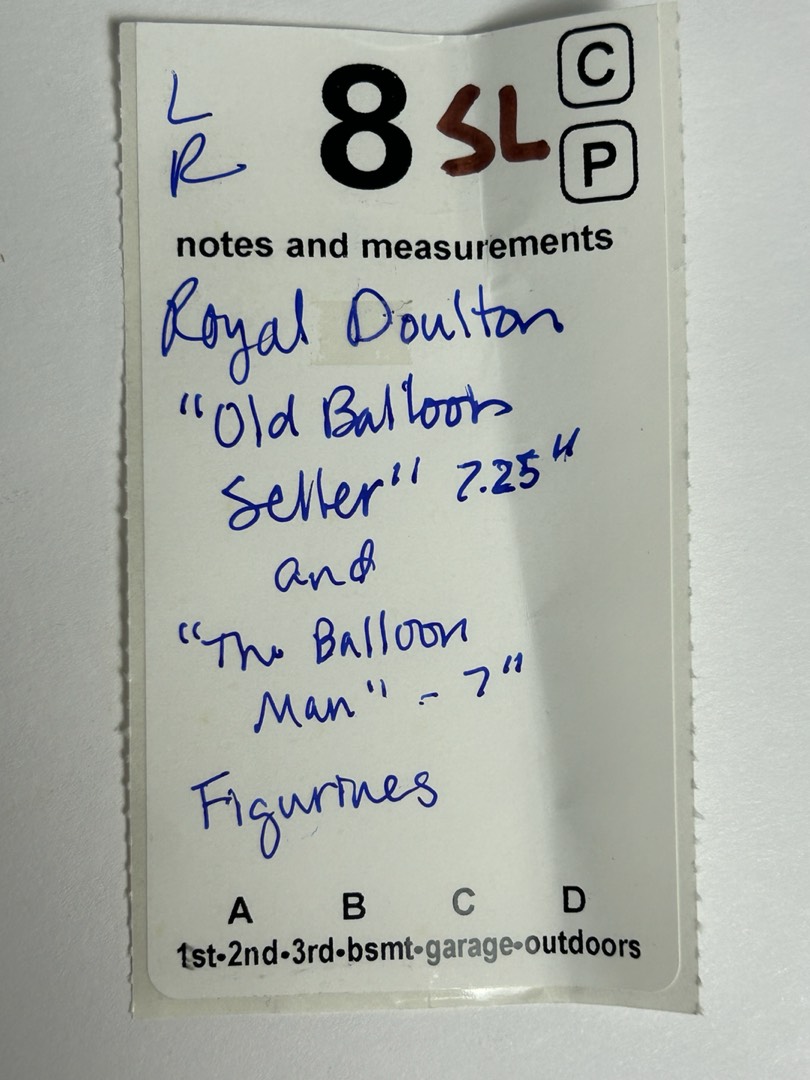 L
R
8 SL
C
P
notes and measurements
Royal Doulton
"Old Balloon
Seller" 7.25"
and
"The Balloon
Man" - 7"
Figurines
A B C D
1st•2nd•3rd•bsmt•garage•outdoors